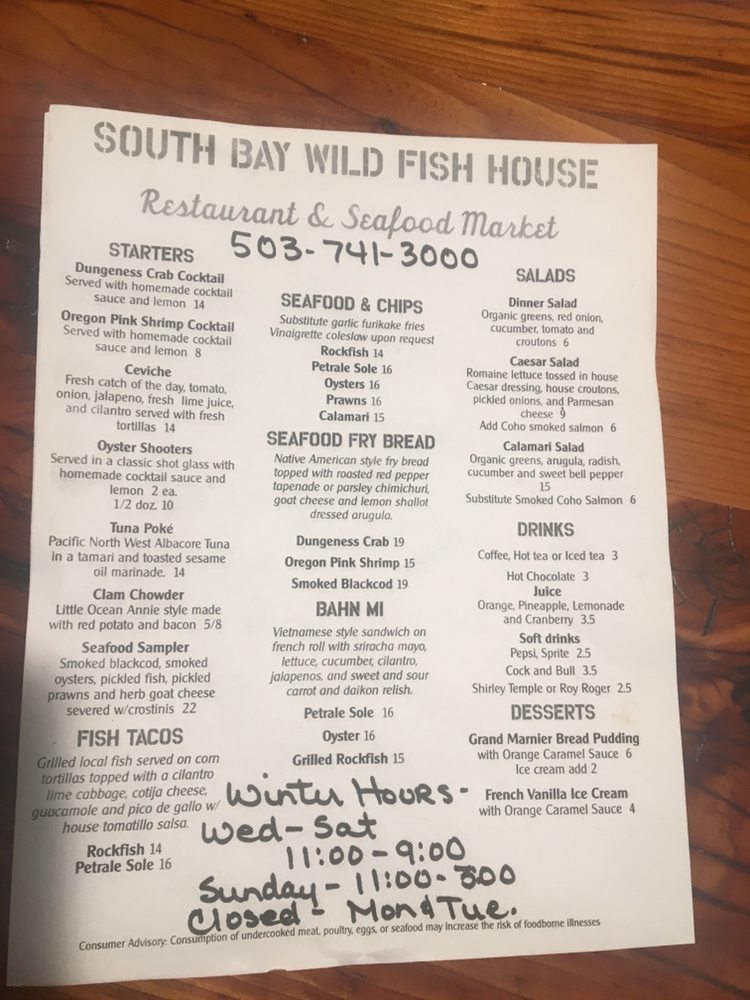 SOUTH BAY WILD FISH HOUSE
Restaurant & Seafood Market
503-741-3000
STARTERS
Dungeness Crab Cocktail
Served with homemade cocktail
sauce and lemon 14
Oregon Pink Shrimp Cocktail
Served with homemade cocktail
sauce and lemon 8
Ceviche
Fresh catch of the day, tomato,
onion, jalapeno, fresh lime juice,
and cilantro served with fresh
tortillas 14
Oyster Shooters
Served in a classic shot glass with
homemade cocktail sauce and
lemon 2 ea.
1/2 doz. 10
Tuna Poké
Pacific North West Albacore Tuna
in a tamari and toasted sesame
oil marinade. 14
Clam Chowder
Little Ocean Annie style made
with red potato and bacon 5/8
Seafood Sampler
Smoked blackcod, smoked
oysters, pickled fish, pickled
prawns and herb goat cheese
severed w/crostinis 22
FISH TACOS
Grilled local fish served on corn
tortillas topped with a cilantro
lime cabbage, cotija cheese,
guacamole and pico de gallo w/
house tomatillo salsa.
Rockfish 14
Petrale Sole 16
SEAFOOD & CHIPS
Substitute garlic furikake fries
Vinaigrette coleslaw upon request
Rockfish 14
Petrale Sole 16
Oysters 16
Prawns 16
Calamari 15
SEAFOOD FRY BREAD
Native American style fry bread
topped with roasted red pepper
tapenade or parsley chimichuri,
goat cheese and lemon shallot
dressed arugula.
Dungeness Crab 19
Oregon Pink Shrimp 15
Smoked Blackcod 19
BAHN MI
Vietnamese style sandwich on
french roll with sriracha mayo,
lettuce, cucumber, cilantro,
jalapenos, and sweet and sour
carrot and daikon relish.
Petrale Sole 16
Oyster 16
Grilled Rockfish 15
SALADS
Dinner Salad
Organic greens, red onion,
cucumber, tomato and
croutons 6
Caesar Salad
Romaine lettuce tossed in house
Caesar dressing, house croutons,
pickled onions, and Parmesan
cheese 9
Add Coho smoked salmon 6
Calamari Salad
Organic greens, arugula, radish,
cucumber and sweet bell pepper
15
Substitute Smoked Coho Salmon 6
DRINKS
Coffee, Hot tea or Iced tea 3
Hot Chocolate 3
Juice
Orange, Pineapple, Lemonade
and Cranberry 3.5
Soft drinks
Pepsi, Sprite 2.5
Cock and Bull 3.5
Shirley Temple or Roy Roger 2.5
DESSERTS
Grand Marnier Bread Pudding
with Orange Caramel Sauce 6
Ice cream add 2
French Vanilla Ice Cream
with Orange Caramel Sauce 4
Winter Hours-
Wed-Sat
11:00-9:00
Sunday-11:00-3:00
Closed- Mon & Tue.
Consumer Advisory: Consumption of undercooked meat, poultry, eggs, or seafood may increase the risk of foodborne illnesses